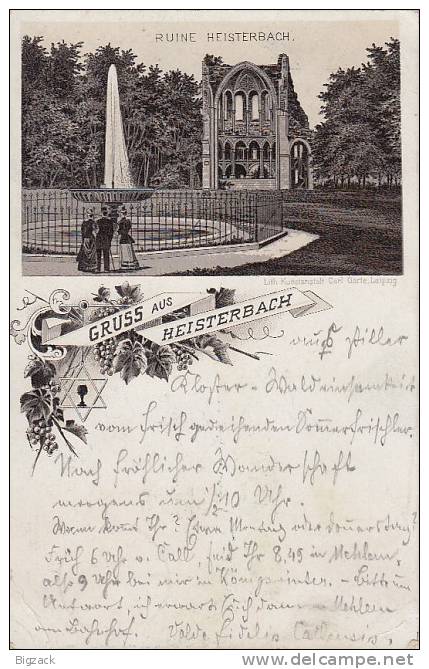 RUINE HEISTERBACH.
Lith. Kunstanstalt Carl Garte, Leipzig
GRUSS AUS
HEISTERBACH
aus stiller
Kloster - Waldeinsamkeit
vom frisch gedeihenden Sommerfrischler.
Nach fröhlicher Wanderschaft
morgens um ½10 Uhr.
Wann kommt Ihr? Montag oder Donnerstag?
Früh 6 Uhr v. Call, seid Ihr 8,45 in Mehlem,
also 9 Uhr bei mir in Königswinter. - Bitte um
Antwort, ich erwarte Euch dann in Mehlem
am Bahnhof. Fidelis
Bigzack
www.delcampe.net